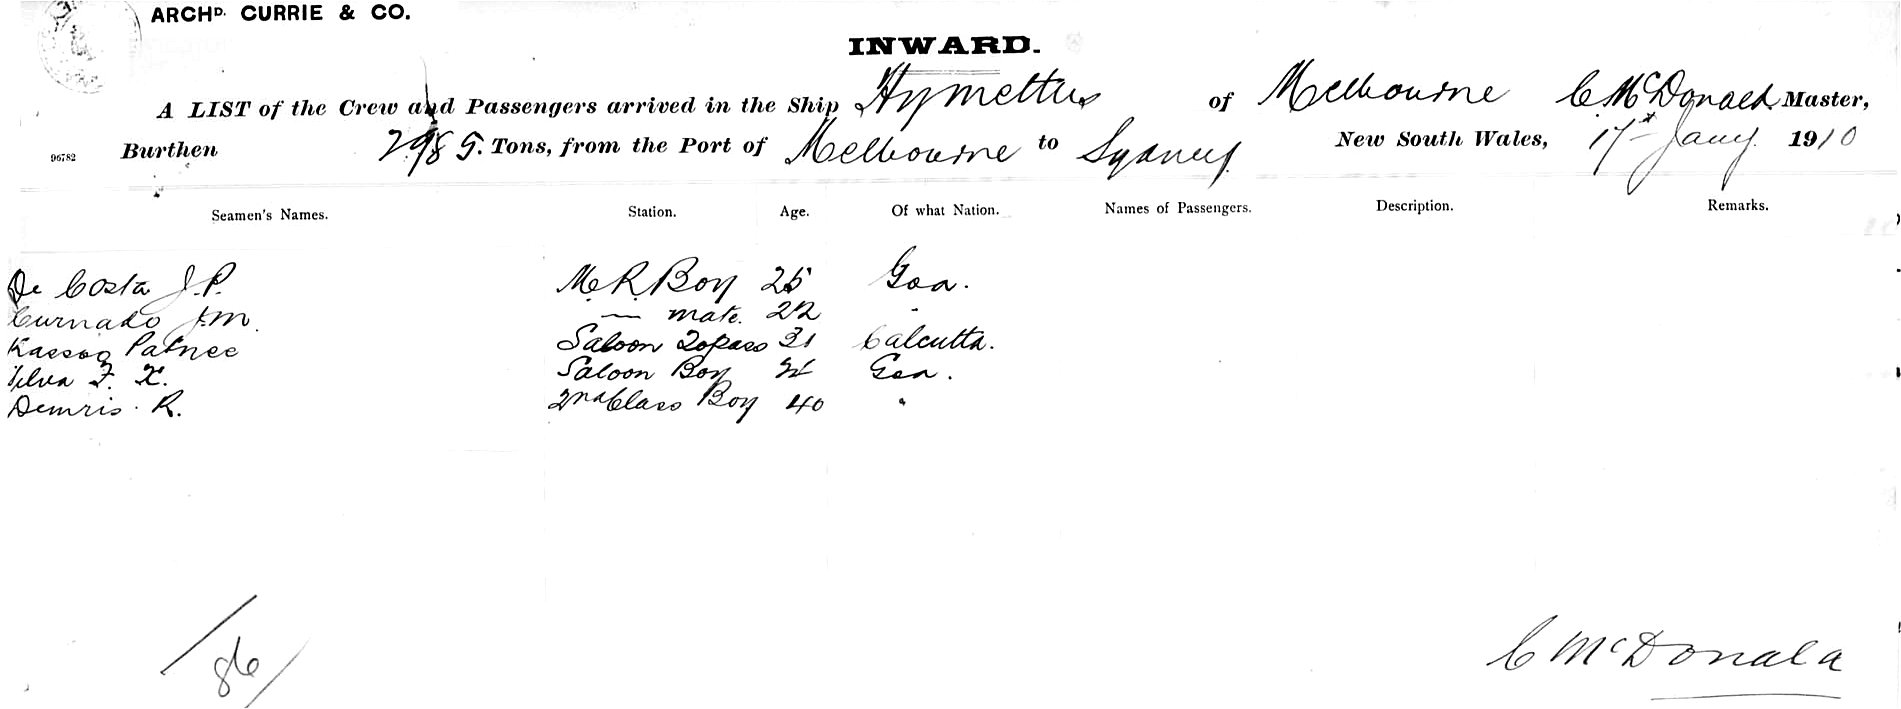 ARCHD. CURRIE & CO.
INWARD.
A LIST of the Crew and Passengers arrived in the Ship Hymettus of Melbourne C McDonald Master,
96782 Burthen 2985. Tons, from the Port of Melbourne to Sydney New South Wales, 17th Jany. 1910
Seamen's Names. Station. Age. Of what Nation. Names of Passengers. Description. Remarks.
De Costa J.P. M.R. Boy 25 Goa.
Curnado J.M. — mate. 22 "
Kassoo Patnee Saloon Topass 31 Calcutta.
Silva F. X. Saloon Boy Goa.
Demris. R. 2nd Class Boy 40 "
86
C McDonald